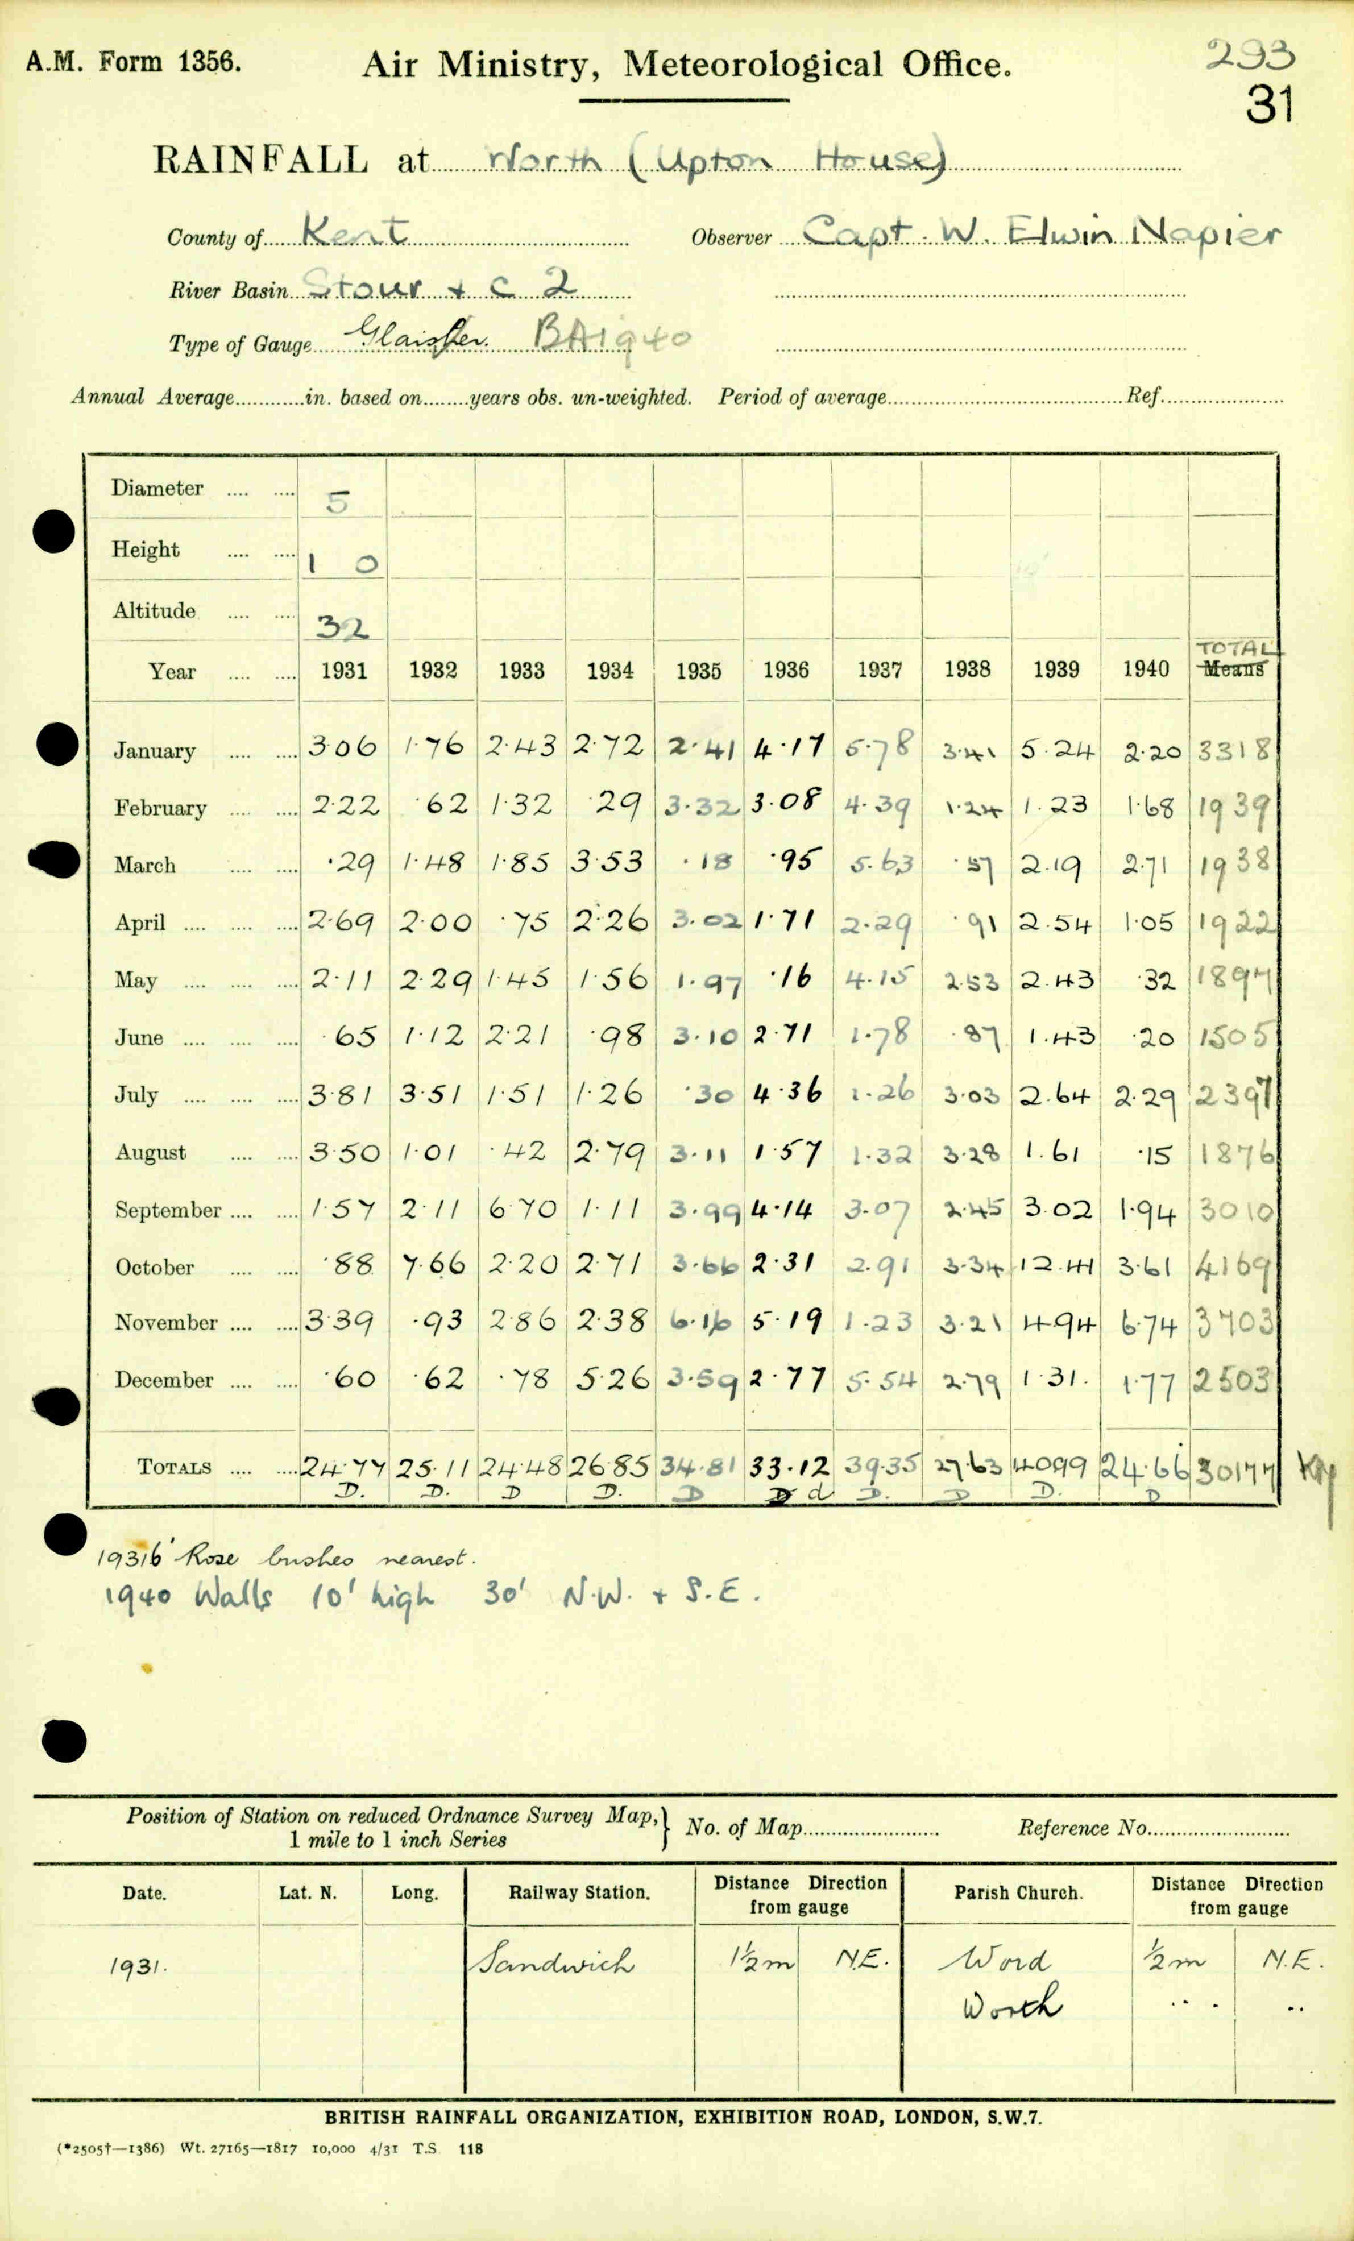 A.M. Form 1356.
Air Ministry, Meteorological Office.
293
31
RAINFALL at Worth (Upton House)
County of Kent Observer Capt. W. Elwin Napier
River Basin Stour + C 2
Type of Gauge Glaisher. BA1940
Annual Average in. based on years obs. un-weighted. Period of average Ref.
Diameter 5
Height 1 0
Altitude 32
TOTAL
Year 1931 1932 1933 1934 1935 1936 1937 1938 1939 1940 Means
January 3·06 1·76 2·43 2·72 2·41 4·17 5·78 3·41 5·24 2·20 3318
February 2·22 ·62 1·32 ·29 3·32 3·08 4·39 1·24 1·23 1·68 1939
March ·29 1·48 1·85 3·53 ·18 ·95 5·63 ·57 2·19 2·71 1938
April 2·69 2·00 ·75 2·26 3·02 1·71 2·29 ·91 2·54 1·05 1922
May 2·11 2·29 1·45 1·56 1·97 ·16 4·15 2·53 2·43 ·32 1897
June ·65 1·12 2·21 ·98 3·10 2·71 1·78 ·87 1·43 ·20 1505
July 3·81 3·51 1·51 1·26 ·30 4·36 1·26 3·03 2·64 2·29 2397
August 3·50 1·01 ·42 2·79 3·11 1·57 1·32 3·28 1·61 ·15 1876
September 1·57 2·11 6·70 1·11 3·99 4·14 3·07 2·45 3·02 1·94 3010
October ·88 7·66 2·20 2·71 3·66 2·31 2·91 3·34 12·41 3·61 4169
November 3·39 ·93 2·86 2·38 6·16 5·19 1·23 3·21 4·94 6·74 3703
December ·60 ·62 ·78 5·26 3·59 2·77 5·54 2·79 1·31. 1·77 2503
TOTALS 24·77 25·11 24·48 26·85 34·81 33·12 39·35 27·63 40·99 24·66 30177
D. D. D D. D D d D. D D. D
1931 6' Rose bushes nearest.
1940 Walls 10' high 30' N.W. + S.E.
Position of Station on reduced Ordnance Survey Map,
1 mile to 1 inch Series
No. of Map Reference No.
Date. Lat. N. Long. Railway Station. Distance Direction from gauge Parish Church. Distance Direction from gauge
1931. Sandwich 1½m N.E. Word ½m N.E.
Worth ... ..
BRITISH RAINFALL ORGANIZATION, EXHIBITION ROAD, LONDON, S.W.7.
(*2505†—1386) Wt. 27165—1817 10,000 4/31 T.S. 118